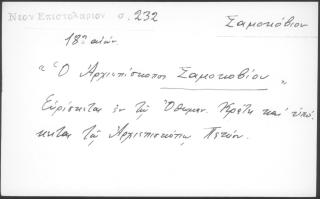 Νεον Επιστολαριον σ. 232 Σαμοκόβιον
18ος αιών
"Ὁ Ἀρχιεπίσκοπος Σαμοκοβίου"
Εὑρίσκεται ἐν τῇ Ὀθωμαν. Κράτει και ὑπό-
κειται τῇ Ἀρχιεπισκόπῳ Πεκίου.